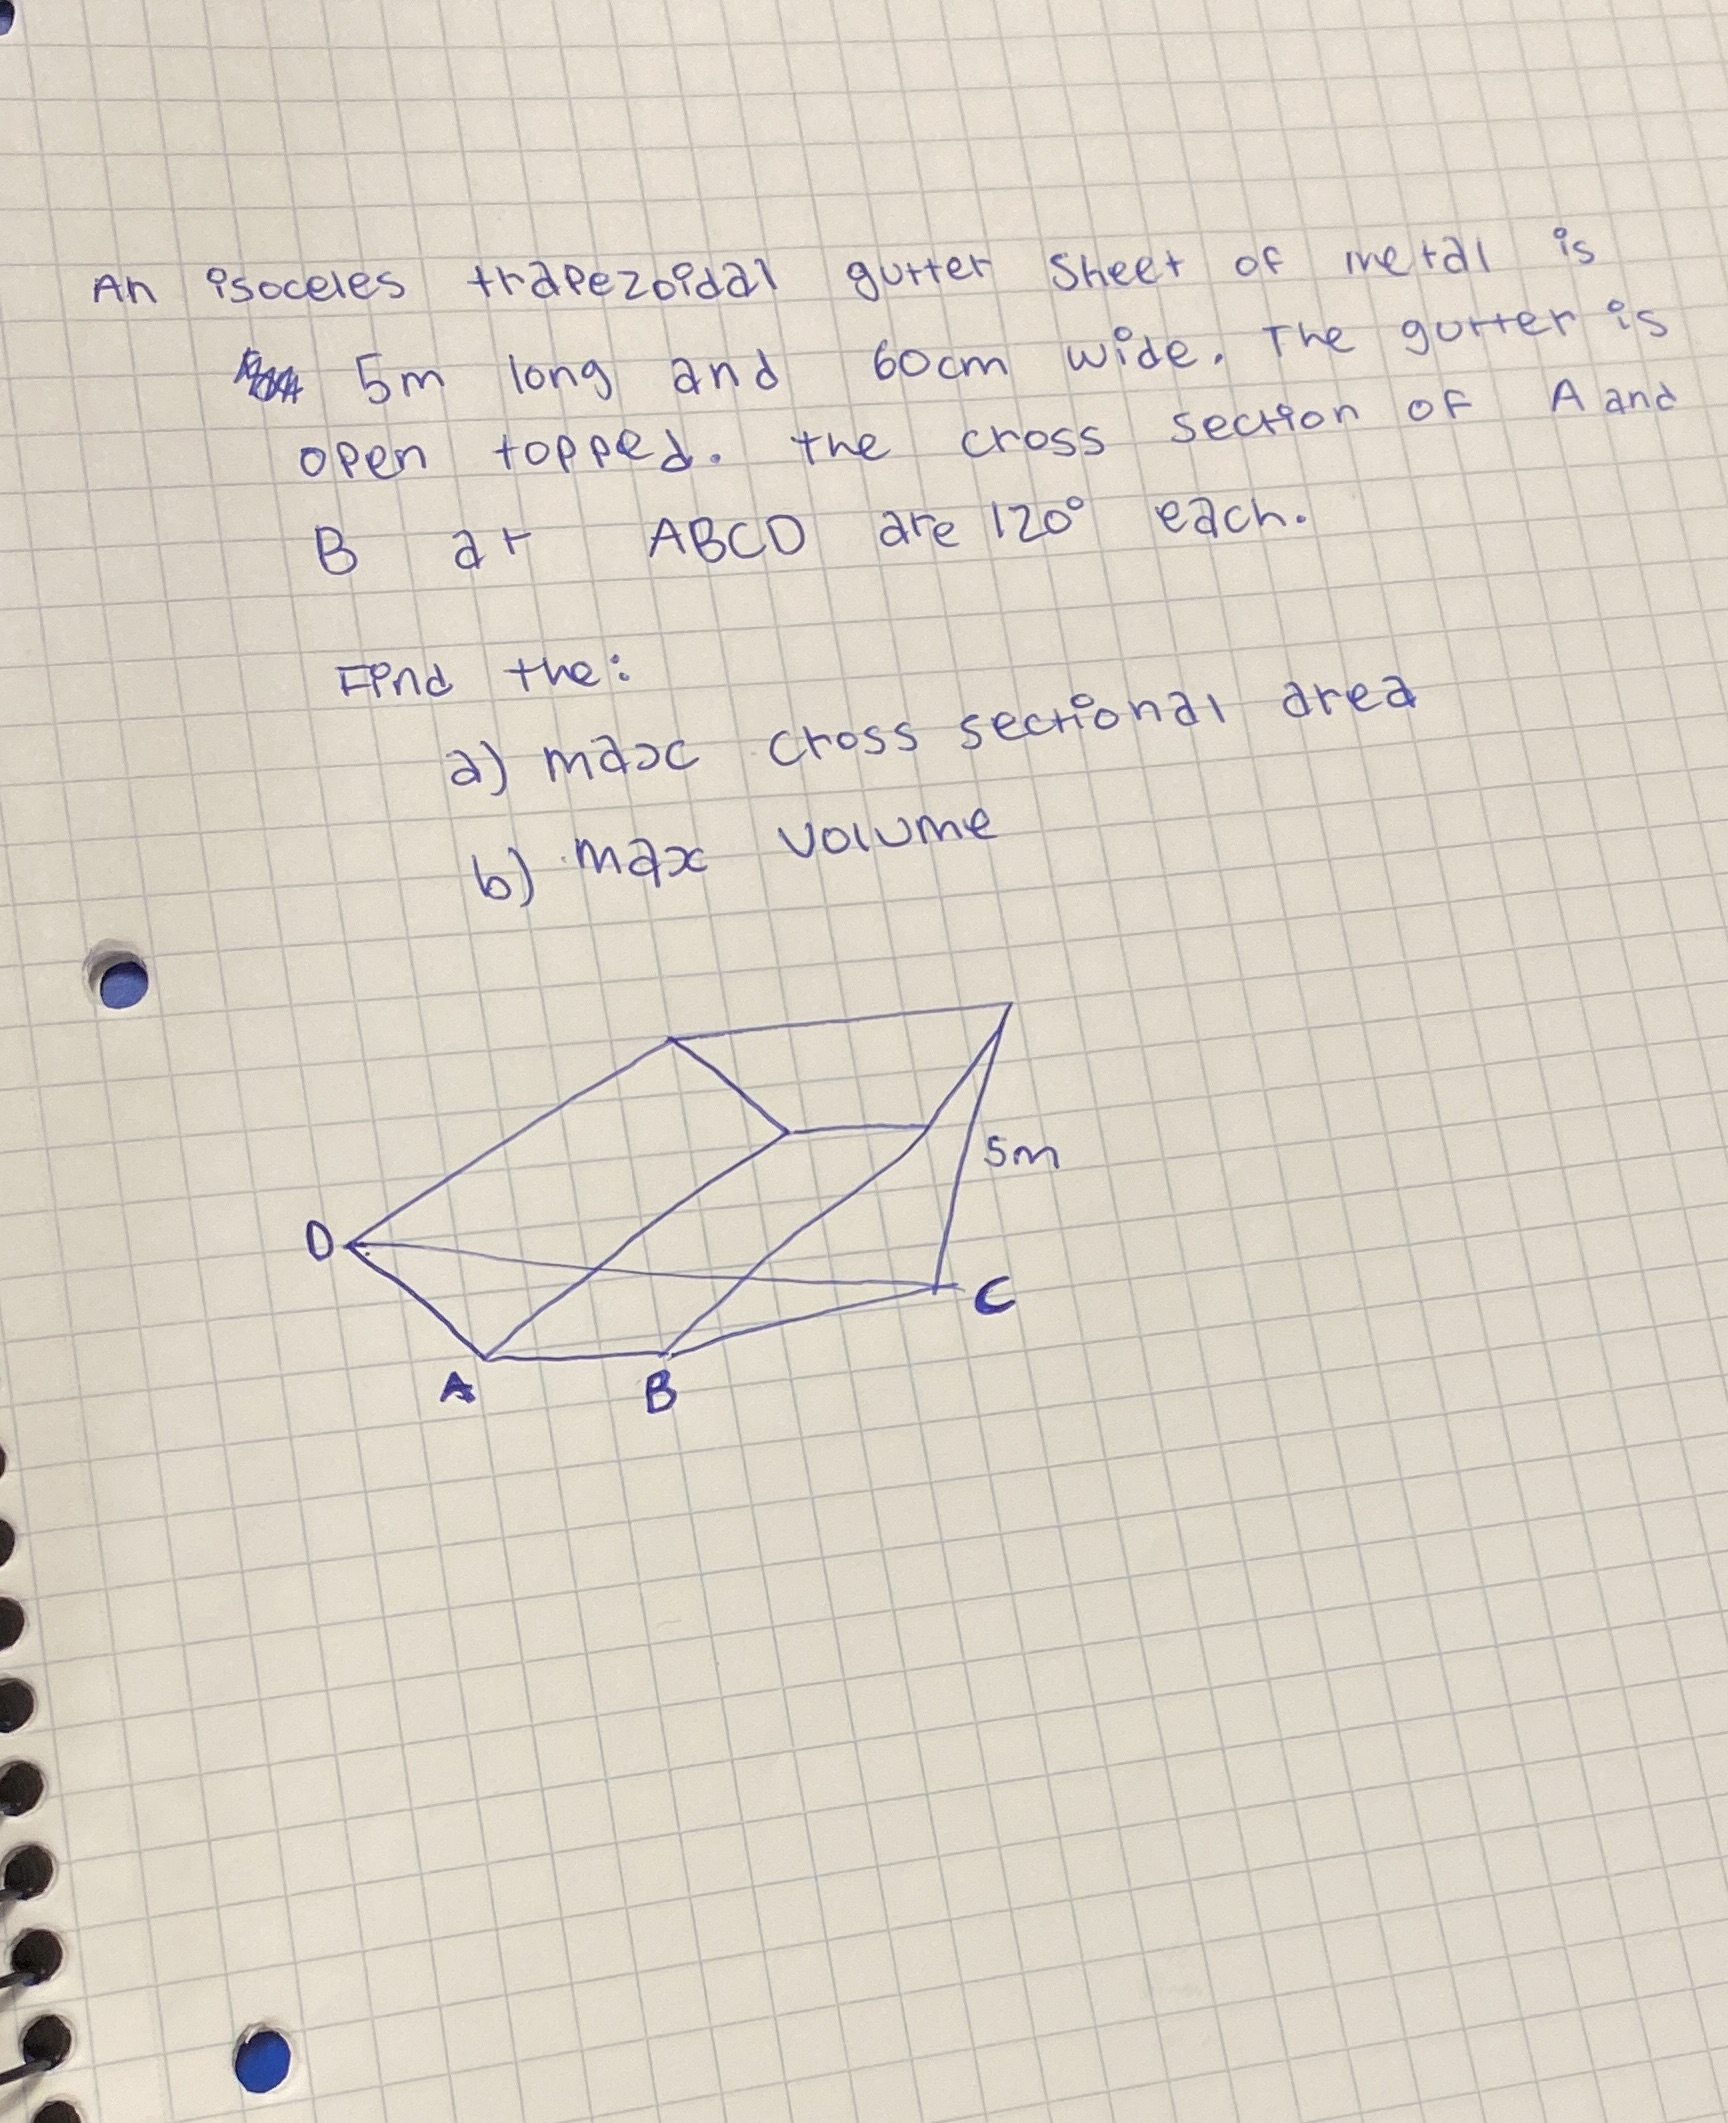 An isoceles trapezoidal gutter sheet of metal is
5m long and 60cm wide. The gutter is
open topped. the cross section of A and
B at ABCD are 120° each.
Find the:
a) max cross sectional area
b) max volume
5m
D
C
A
B